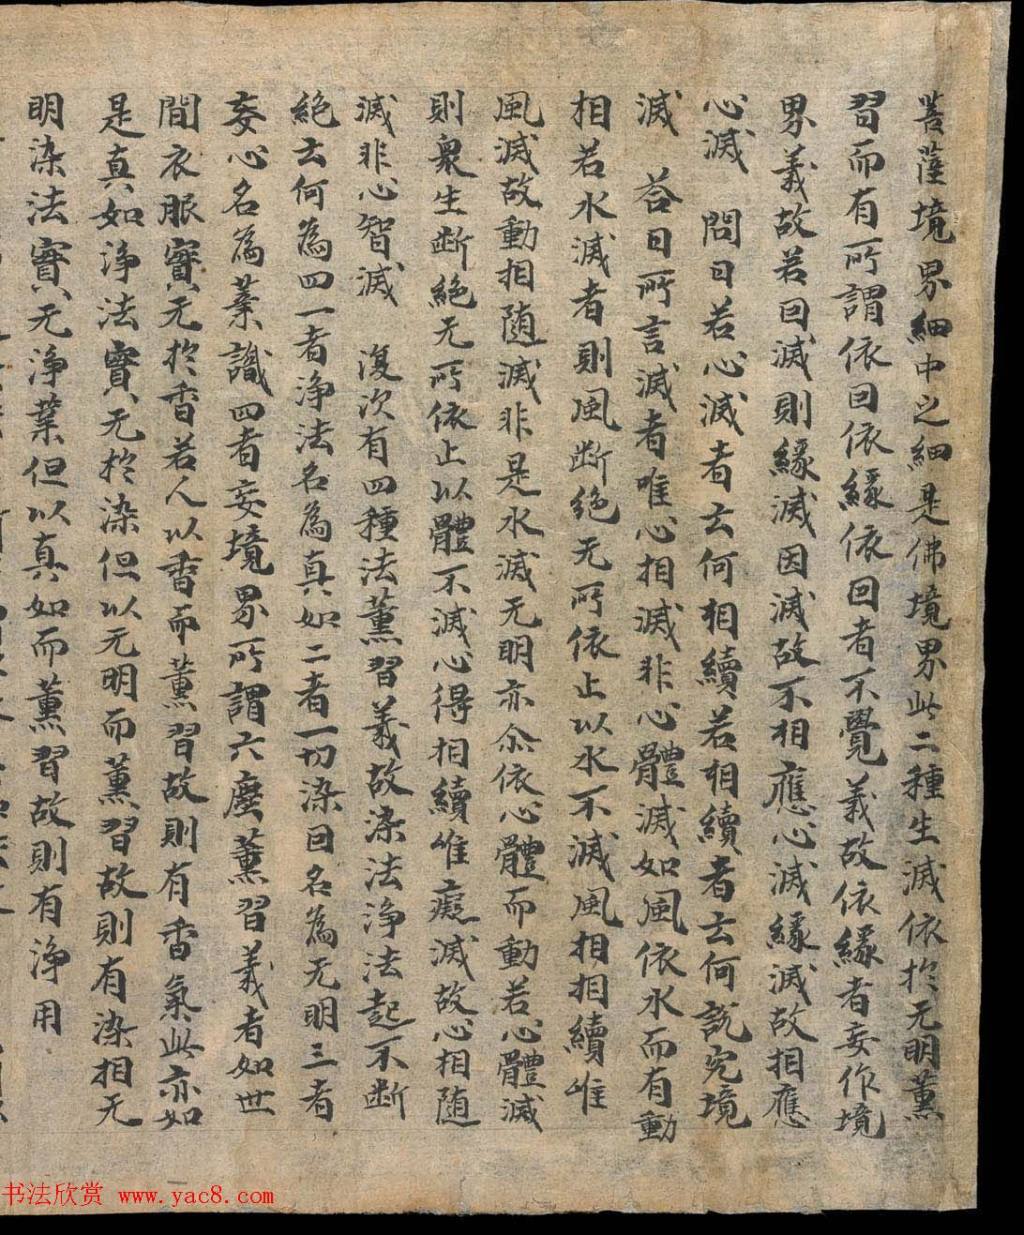 菩薩境界細中之細是佛境界此二種生滅依於无明薰
習而有所謂依回依緣依回者不覺義故依緣者妄作境
界義故若回滅則緣滅因滅故不相應心滅緣滅故相應
心滅 問曰若心滅者云何相續若相續者云何說究境
滅 荅曰所言滅者唯心相滅非心體滅如風依水而有動
相若水滅者則風断絕无所依止以水不滅風相相續唯
風滅故動相随滅非是水滅无明亦尒依心體而動若心體滅
則衆生断絕无所依止以體不滅心得相續唯癡滅故心相随
滅非心智滅 復次有四種法薰習義故染法浄法起不断
絕云何為四一者浄法名為真如二者一切染回名為无明三者
妄心名為業識四者妄境界所謂六塵薰習義者如世
間衣服實无於香若人以香而薰習故則有香氣此亦如
是真如浄法實无於染但以无明而薰習故則有染相无
明染法實无浄業但以真如而薰習故則有浄用
书法欣赏 www.yac8.com